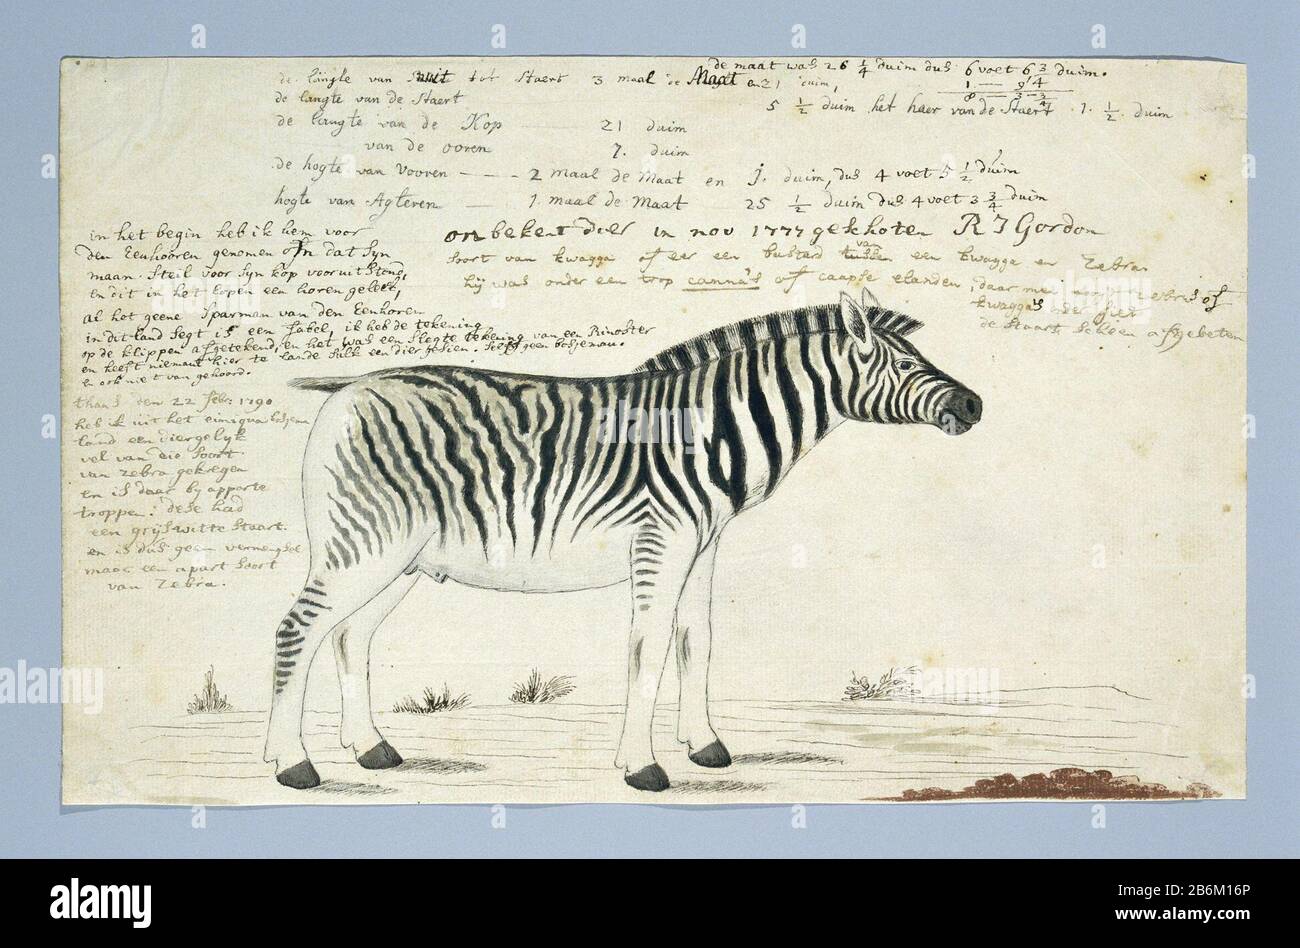 de maat was 26 1/4 duim dus 6 voet 6 3/4 duim.
de lengte van Snuit tot Staert 3 maal de Maat en 21 duim,
1 — 9 1/4
8 — 3 — 3/4
de langte van de Staert 5 1/2 duim het haer van de Staert 1. 1/2 duim
de langte van de Kop 21 duim
van de ooren 7. duim
de hogte van vooren 2 maal de Maat en j. duim, dus 4 voet 5 1/2 duim
hogte van Agteren 1. maal de Maat 25 1/2 duim dus 4 voet 3 3/4 duim
onbekent dier in nov 1777 geschoten R J Gordon
soort van kwagga of eer een bastard van tussen een kwagga en Zebra
hij was onder een trop canna's of caapse elanden, daar me zebras of
kwagga's onder
de Staart scheen afgebeten
in het begin heb ik hem voor
den Eenhooren genomen dat syn
maan. Steil voor syn kop vooruit stond,
en dit in het lopen een horen geleek,
al het geene Sparman van den Eenhoren
in dit land segt is een fabel, ik heb de tekening
op de klippen afgetekend, en het was een slegte tekening van een Rinoster
en heeft niemant hier te lande sulk een dier gesien. selfs geen bosjeman.
en ook niet van gehoord.
thans den 22 febr: 1790
heb ik uit het einiqua
land een diergelyk
vel van die soort
van zebra gekregen
en is daar by apparte
troppen: dese had
een grijswitte staart.
en is dus geen vermengsel
maar een apart soort
van Zebra.
alamy
a
alamy
Image ID: 2B6M16P
www.alamy.com